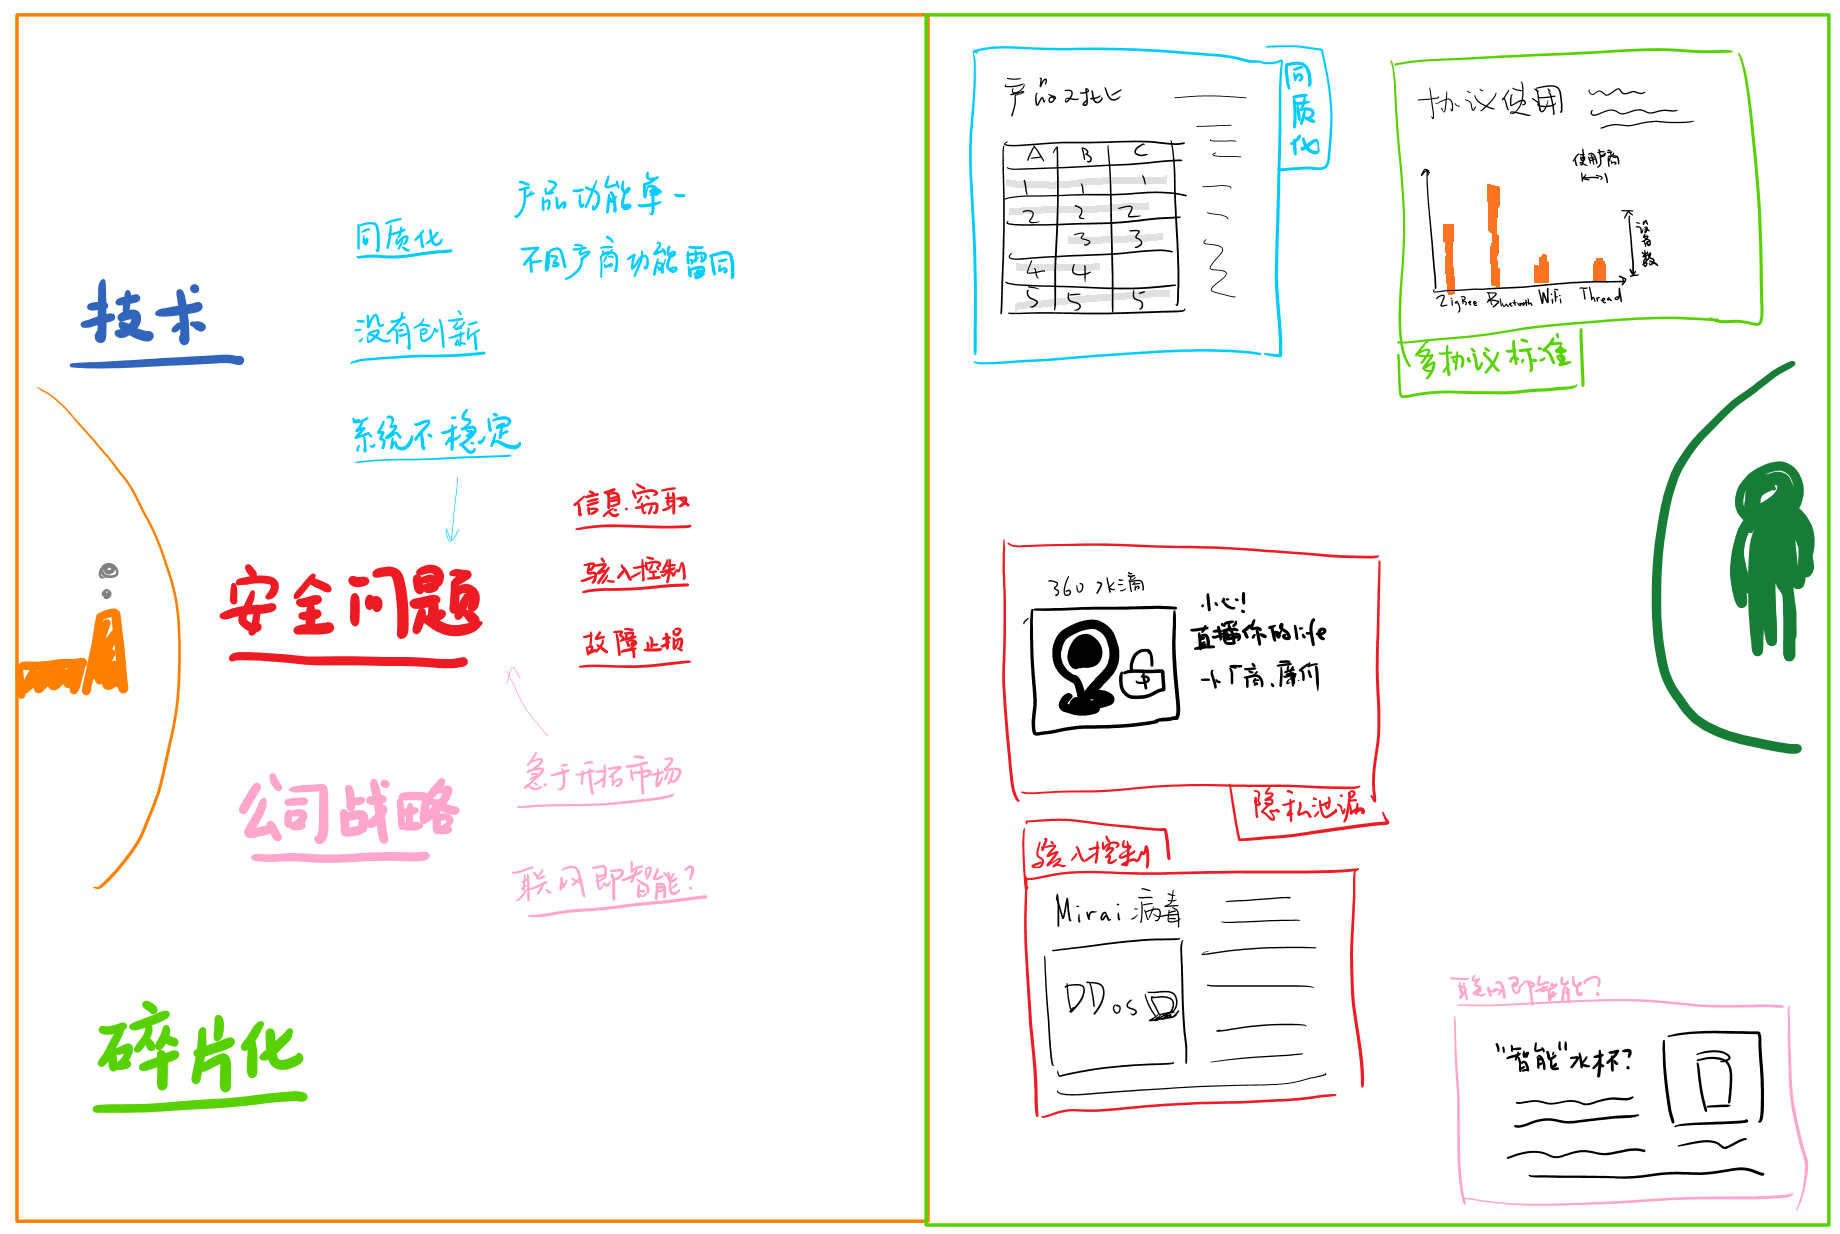 技术
同质化
产品功能单一
不同产商功能雷同
没有创新
系统不稳定
安全问题
信息窃取
骇入控制
故障止损
公司战略
急于开拓市场
联网即智能?
碎片化
同质化
产品对比
A B C
1 1 1
2 2 2
3 3
4 4
5 5 5
协议使用
使用产商
设备数
ZigBee Bluetooth WiFi Thread
多协议标准
360水滴
小心!
直播你的life
小厂商、廉价
隐私泄漏
骇入控制
Mirai病毒
DDos
联网即智能?
"智能"水杯?